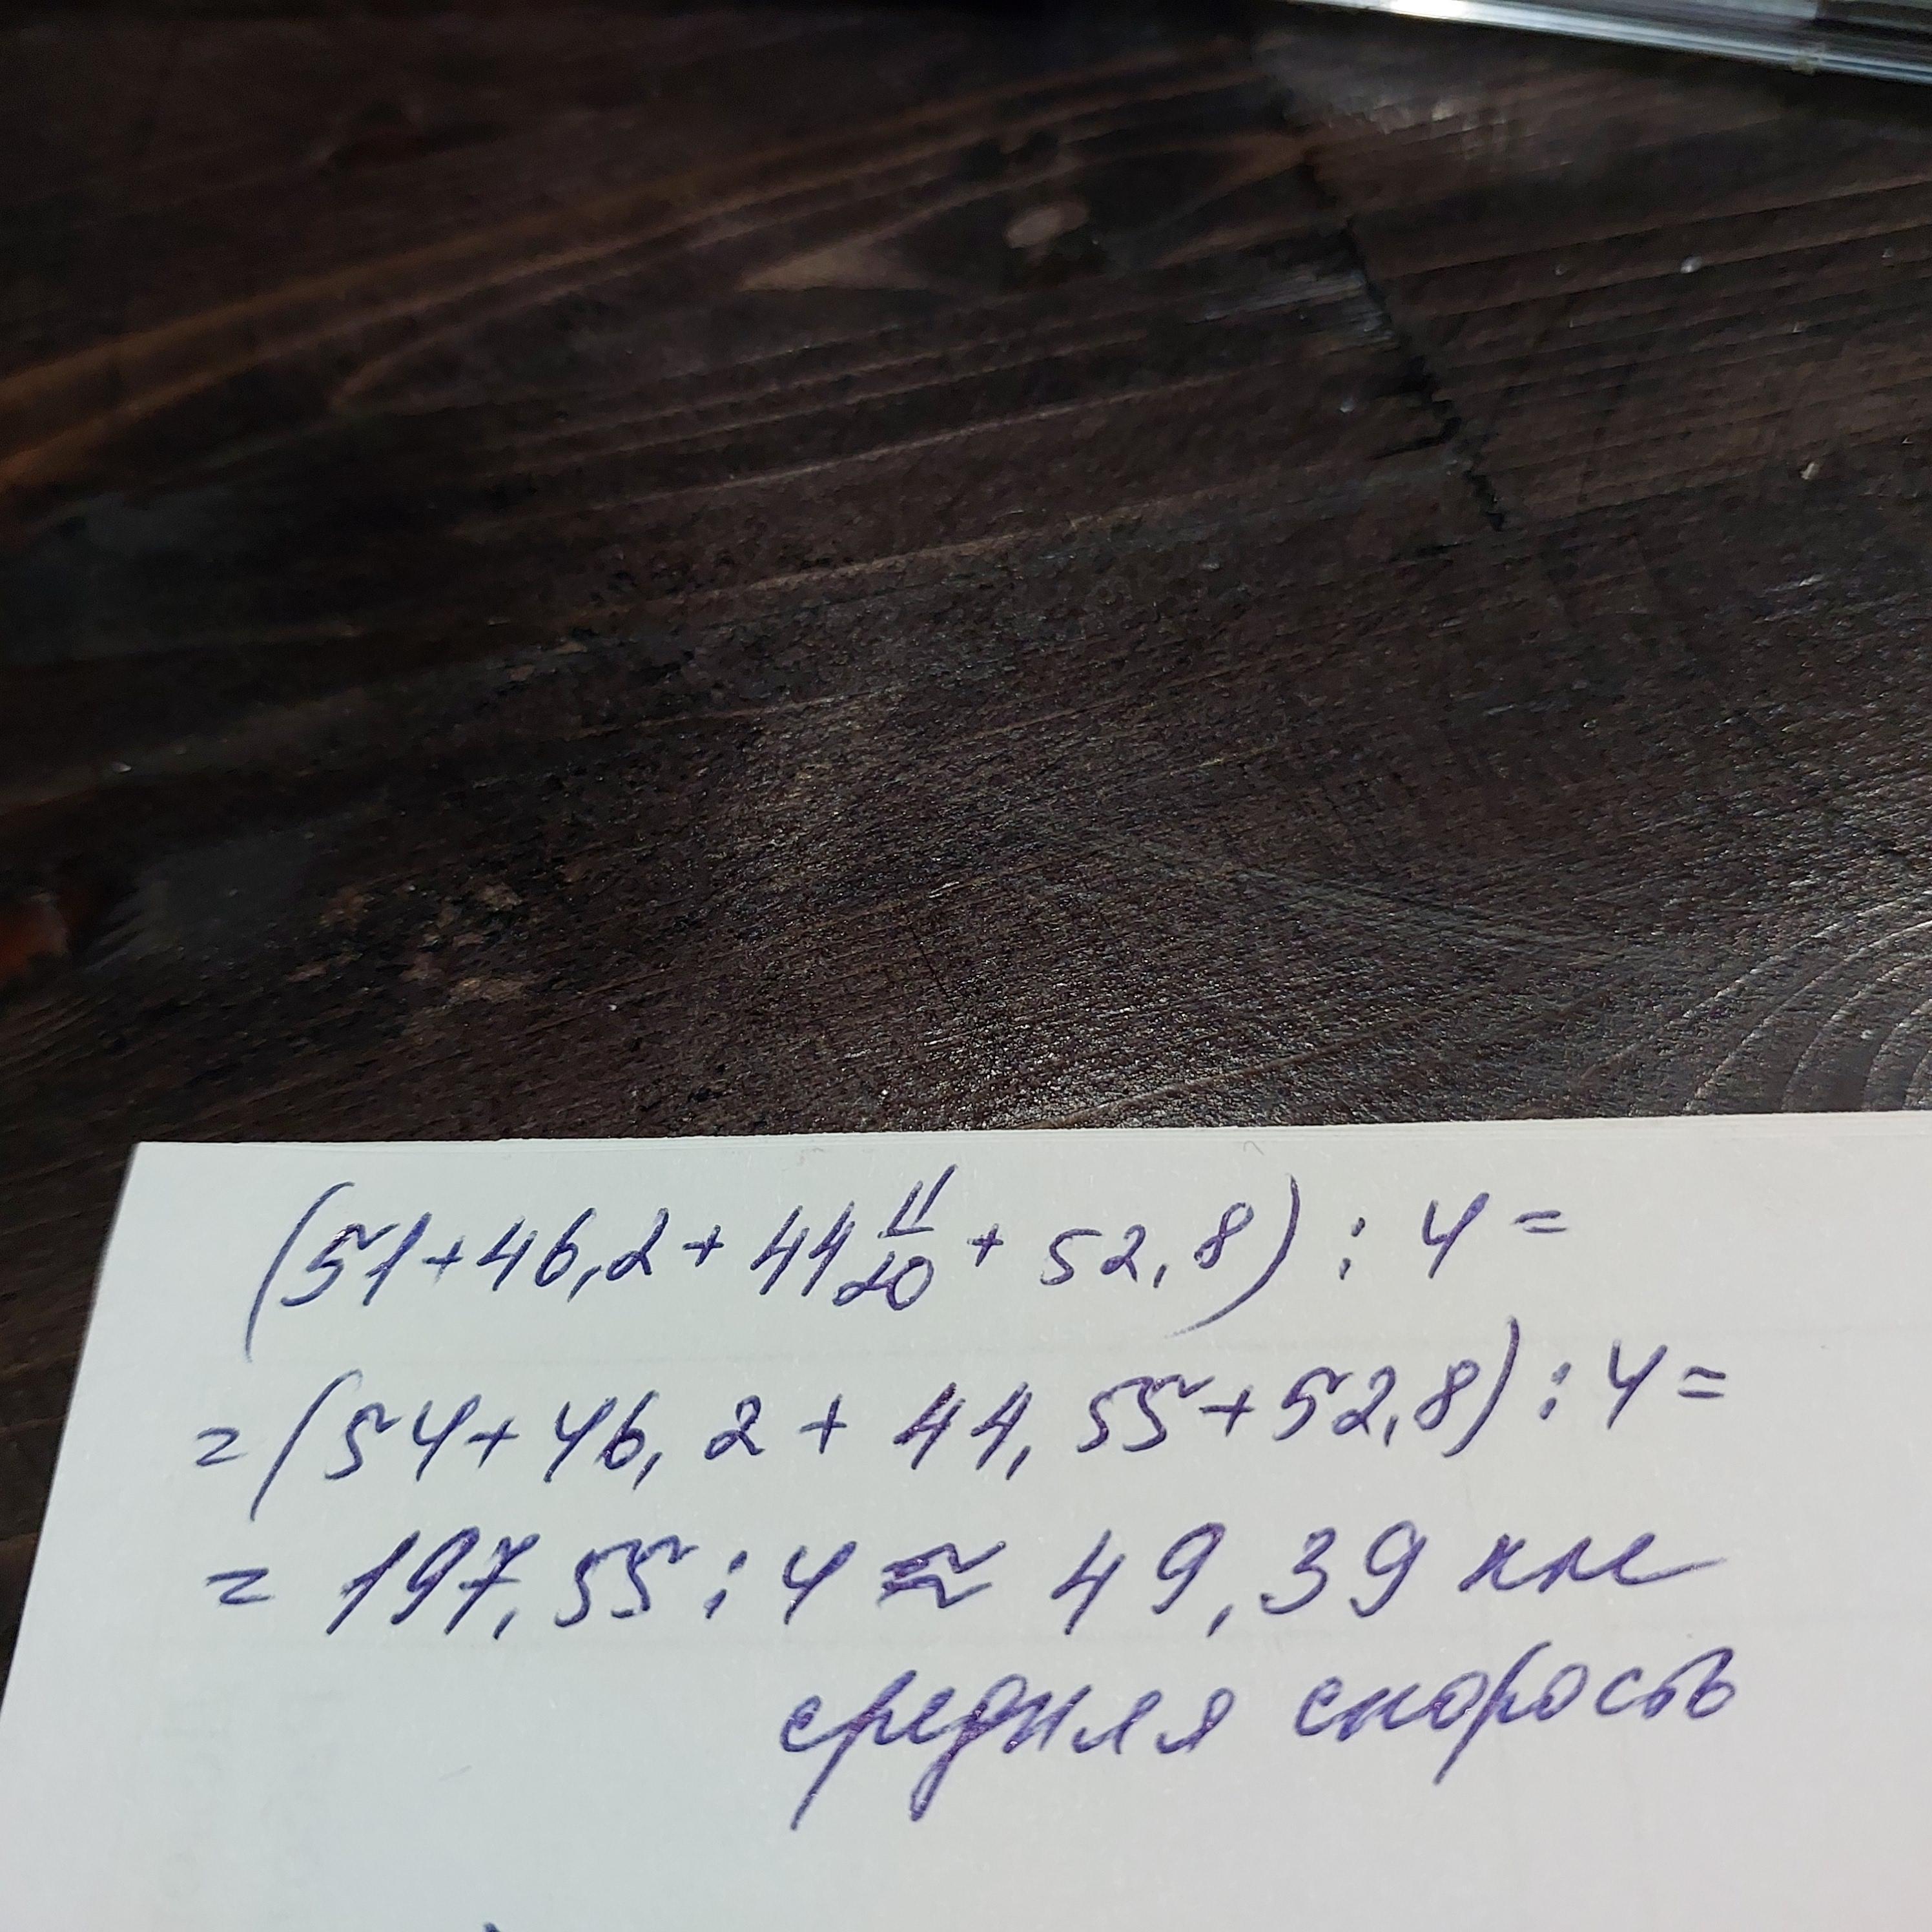 (51+46,2+44 11/20 + 52,8) : 4 =
= (54+46,2 + 44,55+52,8) : 4 =
= 197,55 : 4 ≈ 49,39 км
средняя скорость